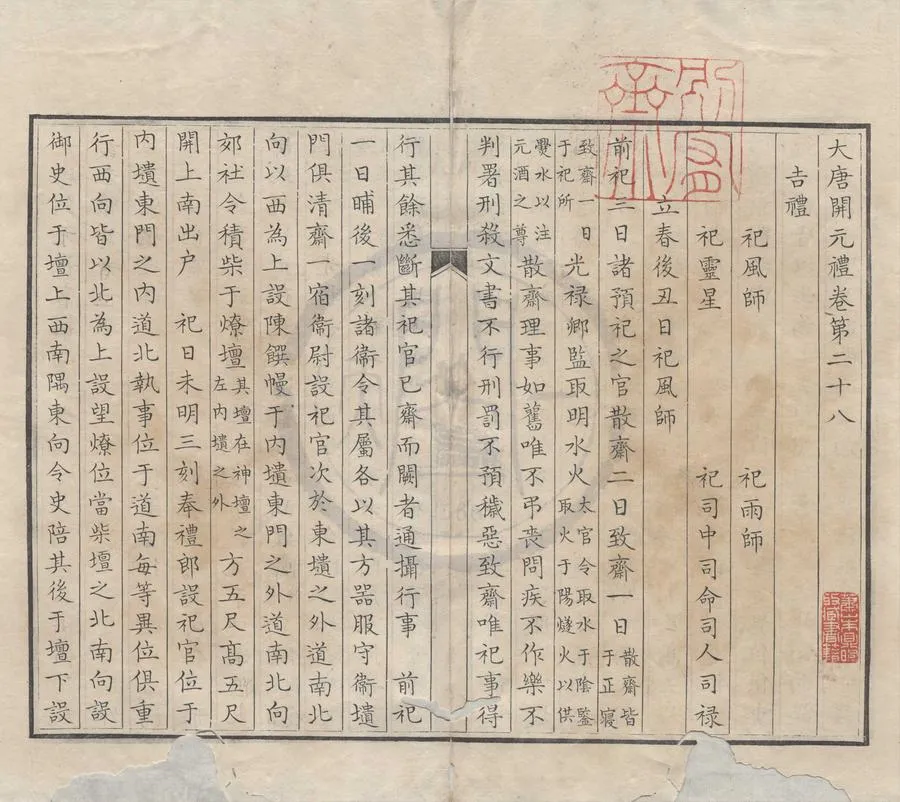 大唐開元禮卷第二十八
吉禮
祀風師　祀雨師
祀靈星　祀司中司命司人司禄
立春後丑日祀風師
前祀三日諸預祀之官散齋二日致齋一日散齋皆于正寢
致齋一日于祀所光禄卿監取明水火太官令取水于陰鑒取火于陽燧火以供
爨水以注元酒之尊散齋理事如舊唯不弔喪問疾不作樂不
判署刑殺文書不行刑罰不預穢惡致齋唯祀事得
行其餘悉斷其祀官已齋而闕者通攝行事　前祀
一日晡後一刻諸衞令其屬各以其方器服守衞壝
門俱清齋一宿衞尉設祀官次於東壝之外道南北
向以西為上設陳饌幔于内壝東門之外道南北向
郊社令積柴于燎壇其壇在神壇之左内壝之外方五尺髙五尺
開上南出户　祀日未明三刻奉禮郎設祀官位于
内壝東門之内道北執事位于道南每等異位俱重
行西向皆以北為上設望燎位當柴壇之北南向設
御史位于壇上西南隅東向令史陪其後于壇下設